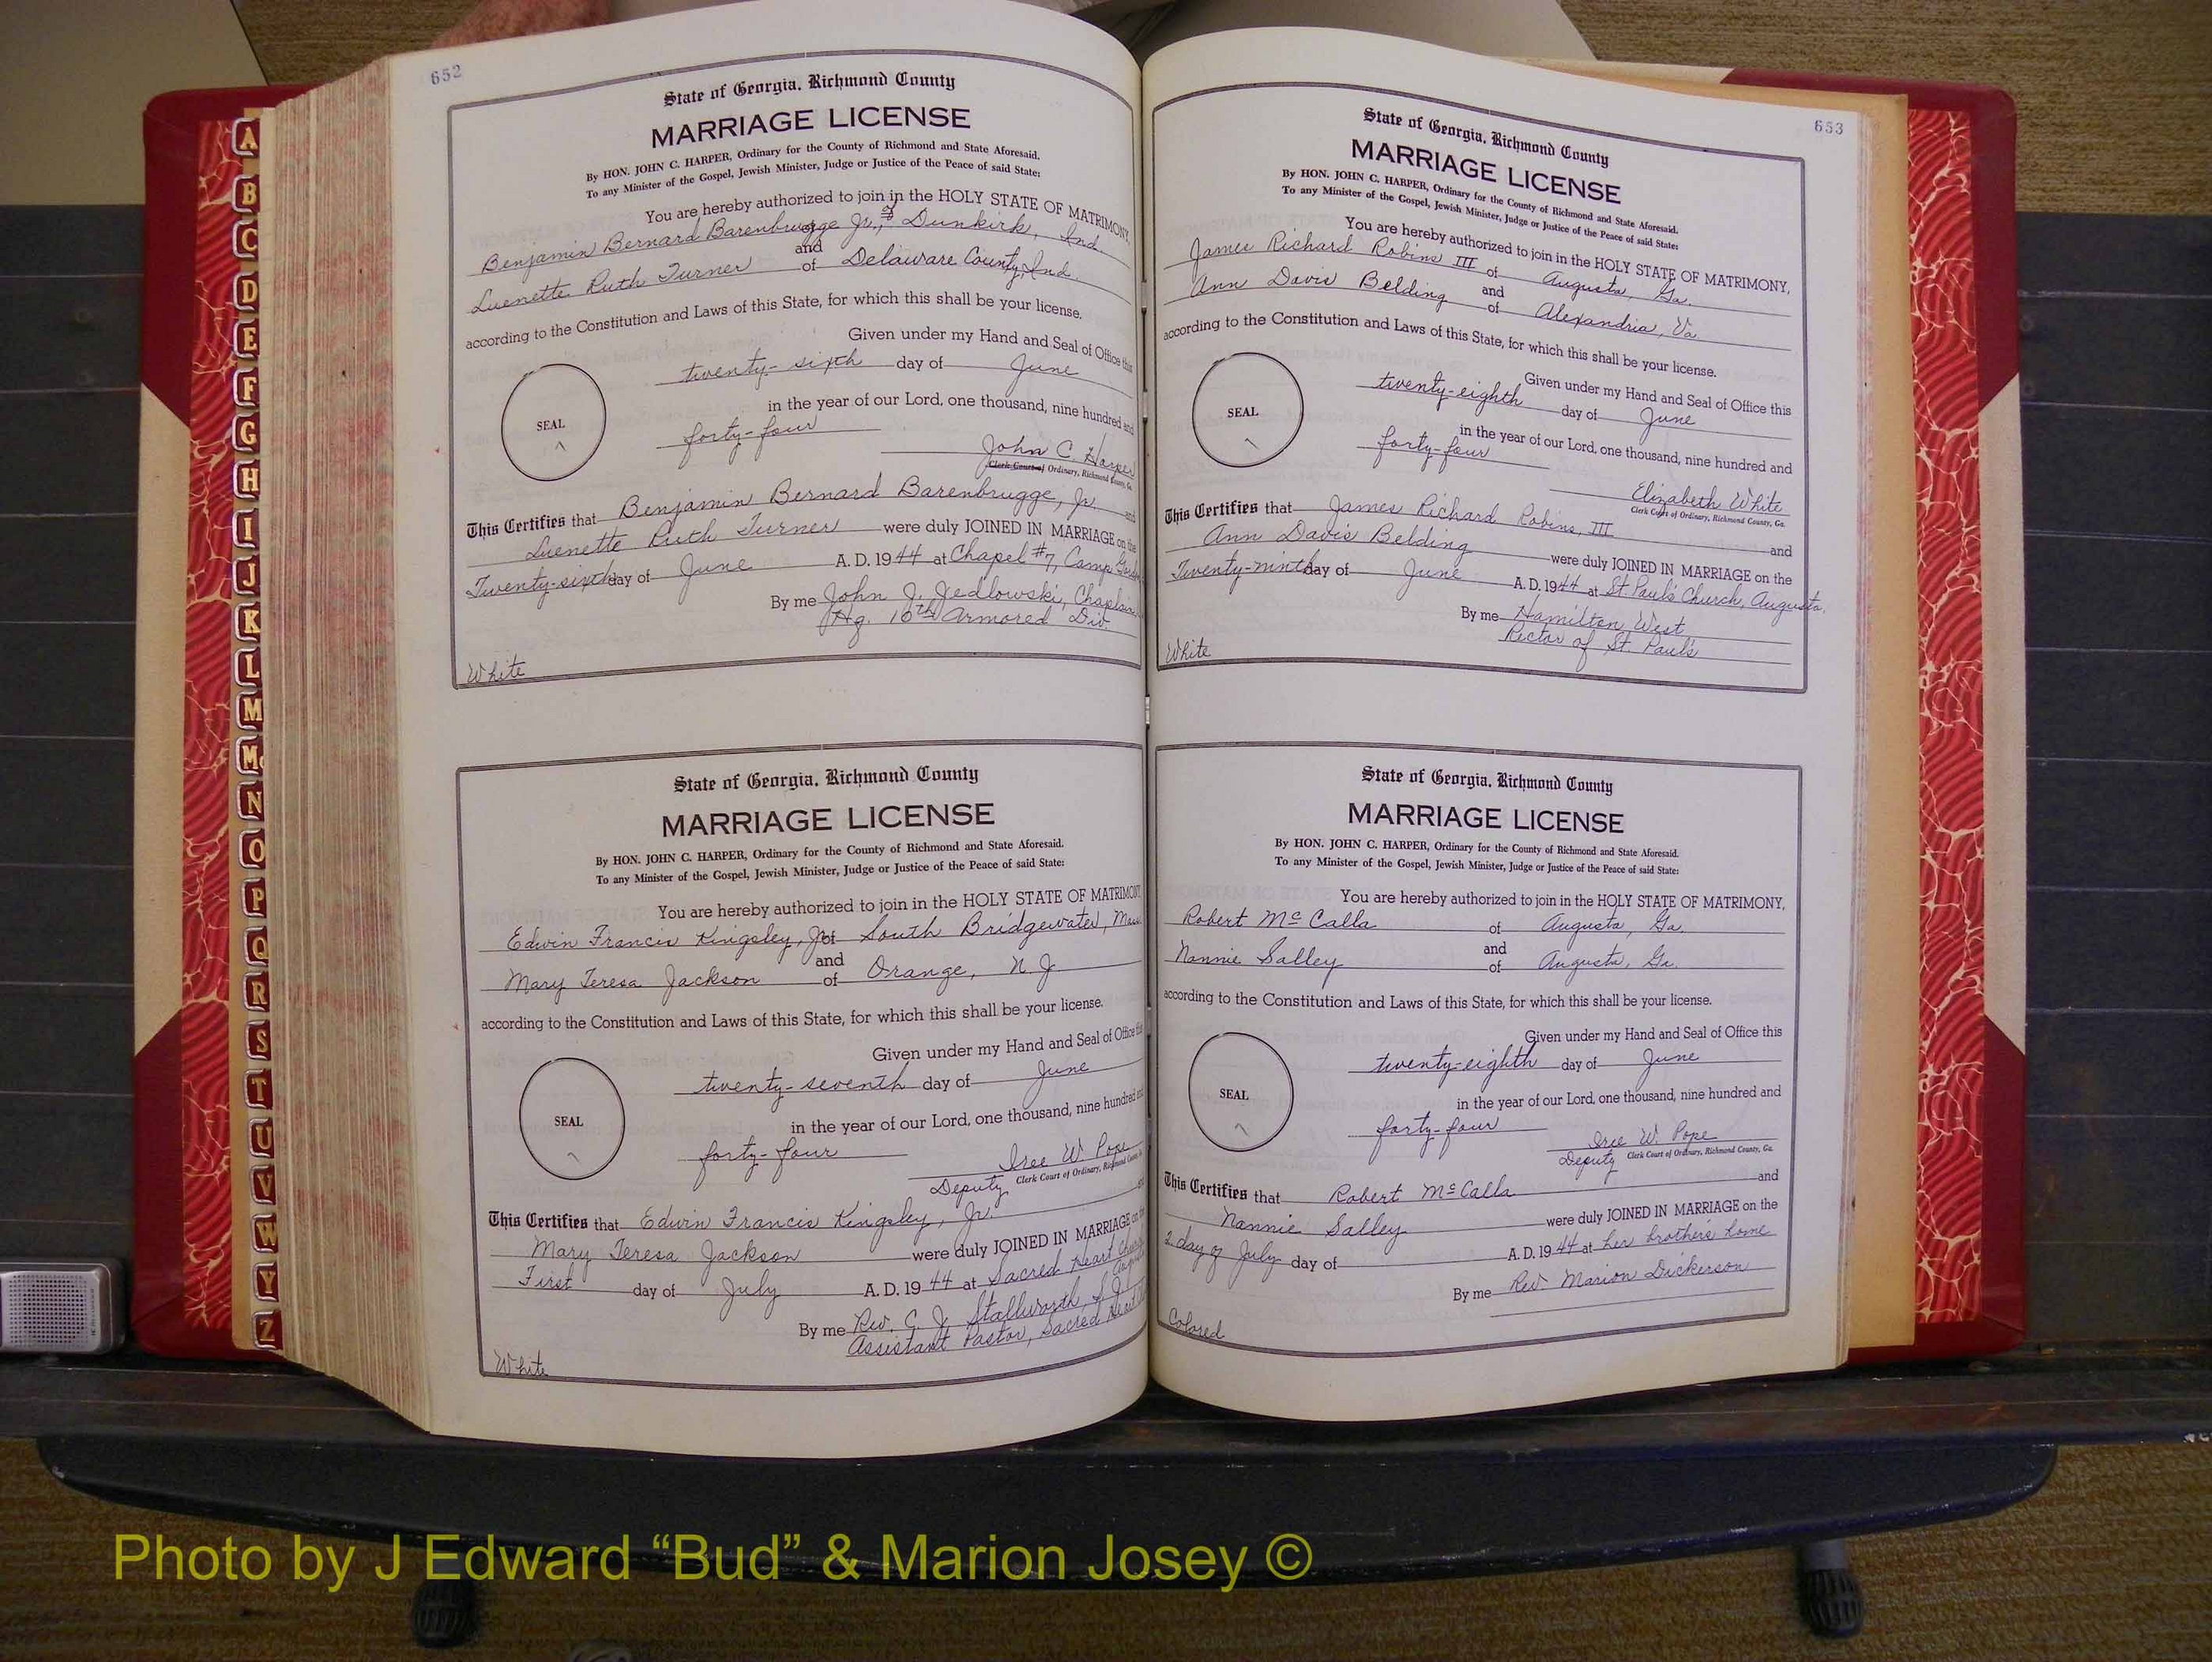 652
State of Georgia, Richmond County
MARRIAGE LICENSE
By HON. JOHN C. HARPER, Ordinary for the County of Richmond and State Aforesaid.
To any Minister of the Gospel, Jewish Minister, Judge or Justice of the Peace of said State:
You are hereby authorized to join in the HOLY STATE OF MATRIMONY,
Benjamin Bernard Barenbrugge Jr., of Dunkirk, Ind.
and
Luenette Ruth Turner of Delaware County, Ind.
according to the Constitution and Laws of this State, for which this shall be your license.
Given under my Hand and Seal of Office this
twenty-sixth day of June
in the year of our Lord, one thousand, nine hundred and
SEAL
forty-four
John C. Harper
Clerk Court of Ordinary, Richmond County, Ga.
This Certifies that Benjamin Bernard Barenbrugge, Jr. and
Luenette Ruth Turner were duly JOINED IN MARRIAGE on the
Twenty-sixth day of June A. D. 1944 at Chapel #7, Camp
By me John J. Jedlowski, Chaplain
Hq. 10th Armored Div.
White
State of Georgia, Richmond County
MARRIAGE LICENSE
By HON. JOHN C. HARPER, Ordinary for the County of Richmond and State Aforesaid.
To any Minister of the Gospel, Jewish Minister, Judge or Justice of the Peace of said State:
You are hereby authorized to join in the HOLY STATE OF MATRIMONY
Edwin Francis Kingsley, Jr. of South Bridgewater, Mass
and
Mary Teresa Jackson of Orange, N. J.
according to the Constitution and Laws of this State, for which this shall be your license.
Given under my Hand and Seal of Office this
twenty-seventh day of June
in the year of our Lord, one thousand, nine hundred and
SEAL
forty-four
Iree W. Pope
Deputy Clerk Court of Ordinary, Richmond County
This Certifies that Edwin Francis Kingsley, Jr. and
Mary Teresa Jackson were duly JOINED IN MARRIAGE on
First day of July A. D. 1944 at Sacred Heart
By me Rev. C. J. Stallworth, S. J.
Assistant Pastor, Sacred Heart
White
653
State of Georgia, Richmond County
MARRIAGE LICENSE
By HON. JOHN C. HARPER, Ordinary for the County of Richmond and State Aforesaid.
To any Minister of the Gospel, Jewish Minister, Judge or Justice of the Peace of said State:
You are hereby authorized to join in the HOLY STATE OF MATRIMONY,
James Richard Robins III of Augusta, Ga.
and
Ann Davis Belding of Alexandria, Va.
according to the Constitution and Laws of this State, for which this shall be your license.
Given under my Hand and Seal of Office this
twenty-eighth day of June
in the year of our Lord, one thousand, nine hundred and
SEAL
forty-four
Elizabeth White
Clerk Court of Ordinary, Richmond County, Ga.
This Certifies that James Richard Robins, III
and
Ann Davis Belding were duly JOINED IN MARRIAGE on the
Twenty-ninth day of June A. D. 1944 at St. Paul's Church, Augusta.
By me Hamilton West
Rector of St. Paul's
White
State of Georgia, Richmond County
MARRIAGE LICENSE
By HON. JOHN C. HARPER, Ordinary for the County of Richmond and State Aforesaid.
To any Minister of the Gospel, Jewish Minister, Judge or Justice of the Peace of said State:
You are hereby authorized to join in the HOLY STATE OF MATRIMONY,
Robert McCalla of Augusta, Ga.
and
Nannie Salley of Augusta, Ga.
according to the Constitution and Laws of this State, for which this shall be your license.
Given under my Hand and Seal of Office this
twenty-eighth day of June
in the year of our Lord, one thousand, nine hundred and
SEAL
forty-four
Iree W. Pope
Deputy Clerk Court of Ordinary, Richmond County, Ga.
This Certifies that Robert McCalla and
Nannie Salley were duly JOINED IN MARRIAGE on the
2 day of July day of A. D. 1944 at her brother's home
By me Rev. Marion Dickerson
Colored
A
B
C
D
E
F
G
H
I
J
K
L
M
Mc
N
O
P
Q
R
S
T
U
V
W
Y
Z
Photo by J Edward “Bud” & Marion Josey ©